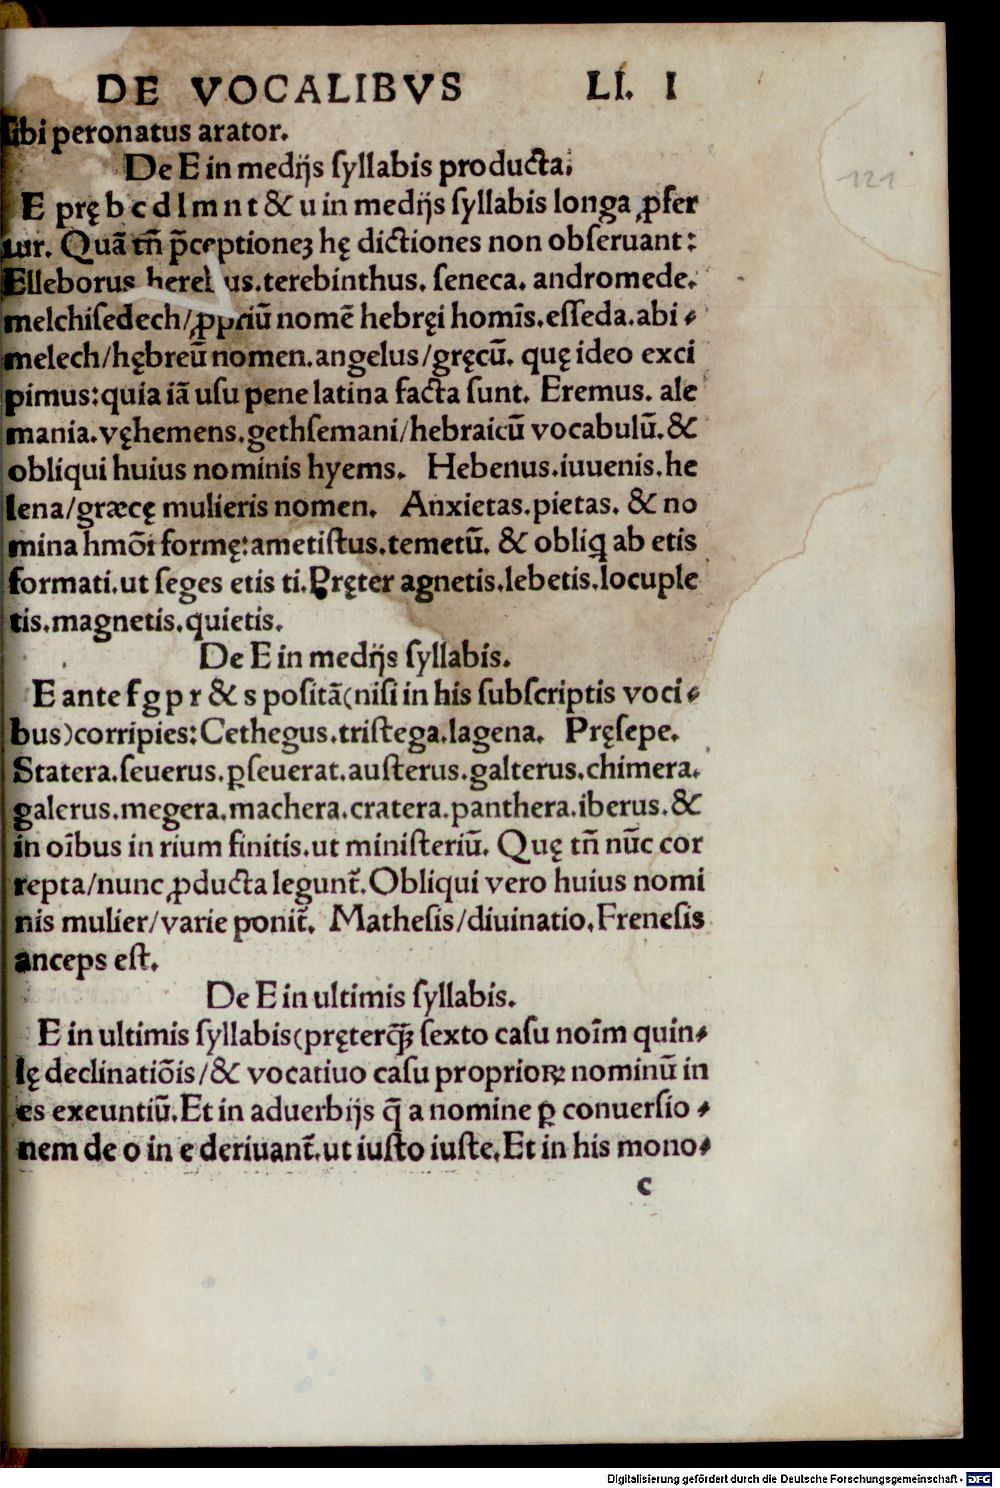 DE VOCALIBVS LI. I
121
sibi peronatus arator.
De E in medijs ſyllabis producta.
E prę b c d l m n t & u in medijs ſyllabis longa ꝓfer
tur. Quā tñ p̄ceptioneꝫ hę dictiones non obſeruant:
Elleborus terebinthus. ſeneca. andromede.
melchiſedech/ꝓpriū nomē hebręi homīs.eſſeda.abi⸗
melech/hębreū nomen.angelus/gręcū. quę ideo exci
pimus:quia iā uſu pene latina facta ſunt. Eremus. ale
mania.vęhemens.gethſemani/hebraicū vocabulū.&
obliqui huius nominis hyems. Hebenus.iuuenis.he
lena/græcę mulieris nomen. Anxietas.pietas. & no
mina hmōi formę:ametiſtus.temetū. & obliq̨ ab etis
formati.ut ſeges etis ti.Pręter agnetis.lebetis.locuple
tis.magnetis.quietis.
De E in medijs ſyllabis.
E ante f g p r & s poſitā(niſi in his ſubſcriptis voci⸗
bus)corripies:Cethegus.triſtega.lagena. Pręſepe.
Statera.ſeuerus.ꝑſeuerat.auſterus.galterus.chimera.
galerus.megera.machera.cratera.panthera.iberus.&
in oībus in rium finitis.ut miniſteriū. Quę tñ nūc cor
repta/nunc ꝓducta legunt̄.Obliqui vero huius nomi
nis mulier/varie ponit̄. Matheſis/diuinatio.Freneſis
anceps eſt.
De E in ultimis ſyllabis.
E in ultimis ſyllabis(pręterq̄ꝫ ſexto caſu noīm quin⸗
tę declinatiōis/& vocatiuo caſu proprioꝝ nominū in
es exeuntiū.Et in aduerbijs q̄ a nomine ꝑ conuerſio⸗
nem de o in e deriuant̄.ut iuſto iuſte.Et in his mono⸗
c
Digitalisierung gefördert durch die Deutsche Forschungsgemeinschaft - DFG